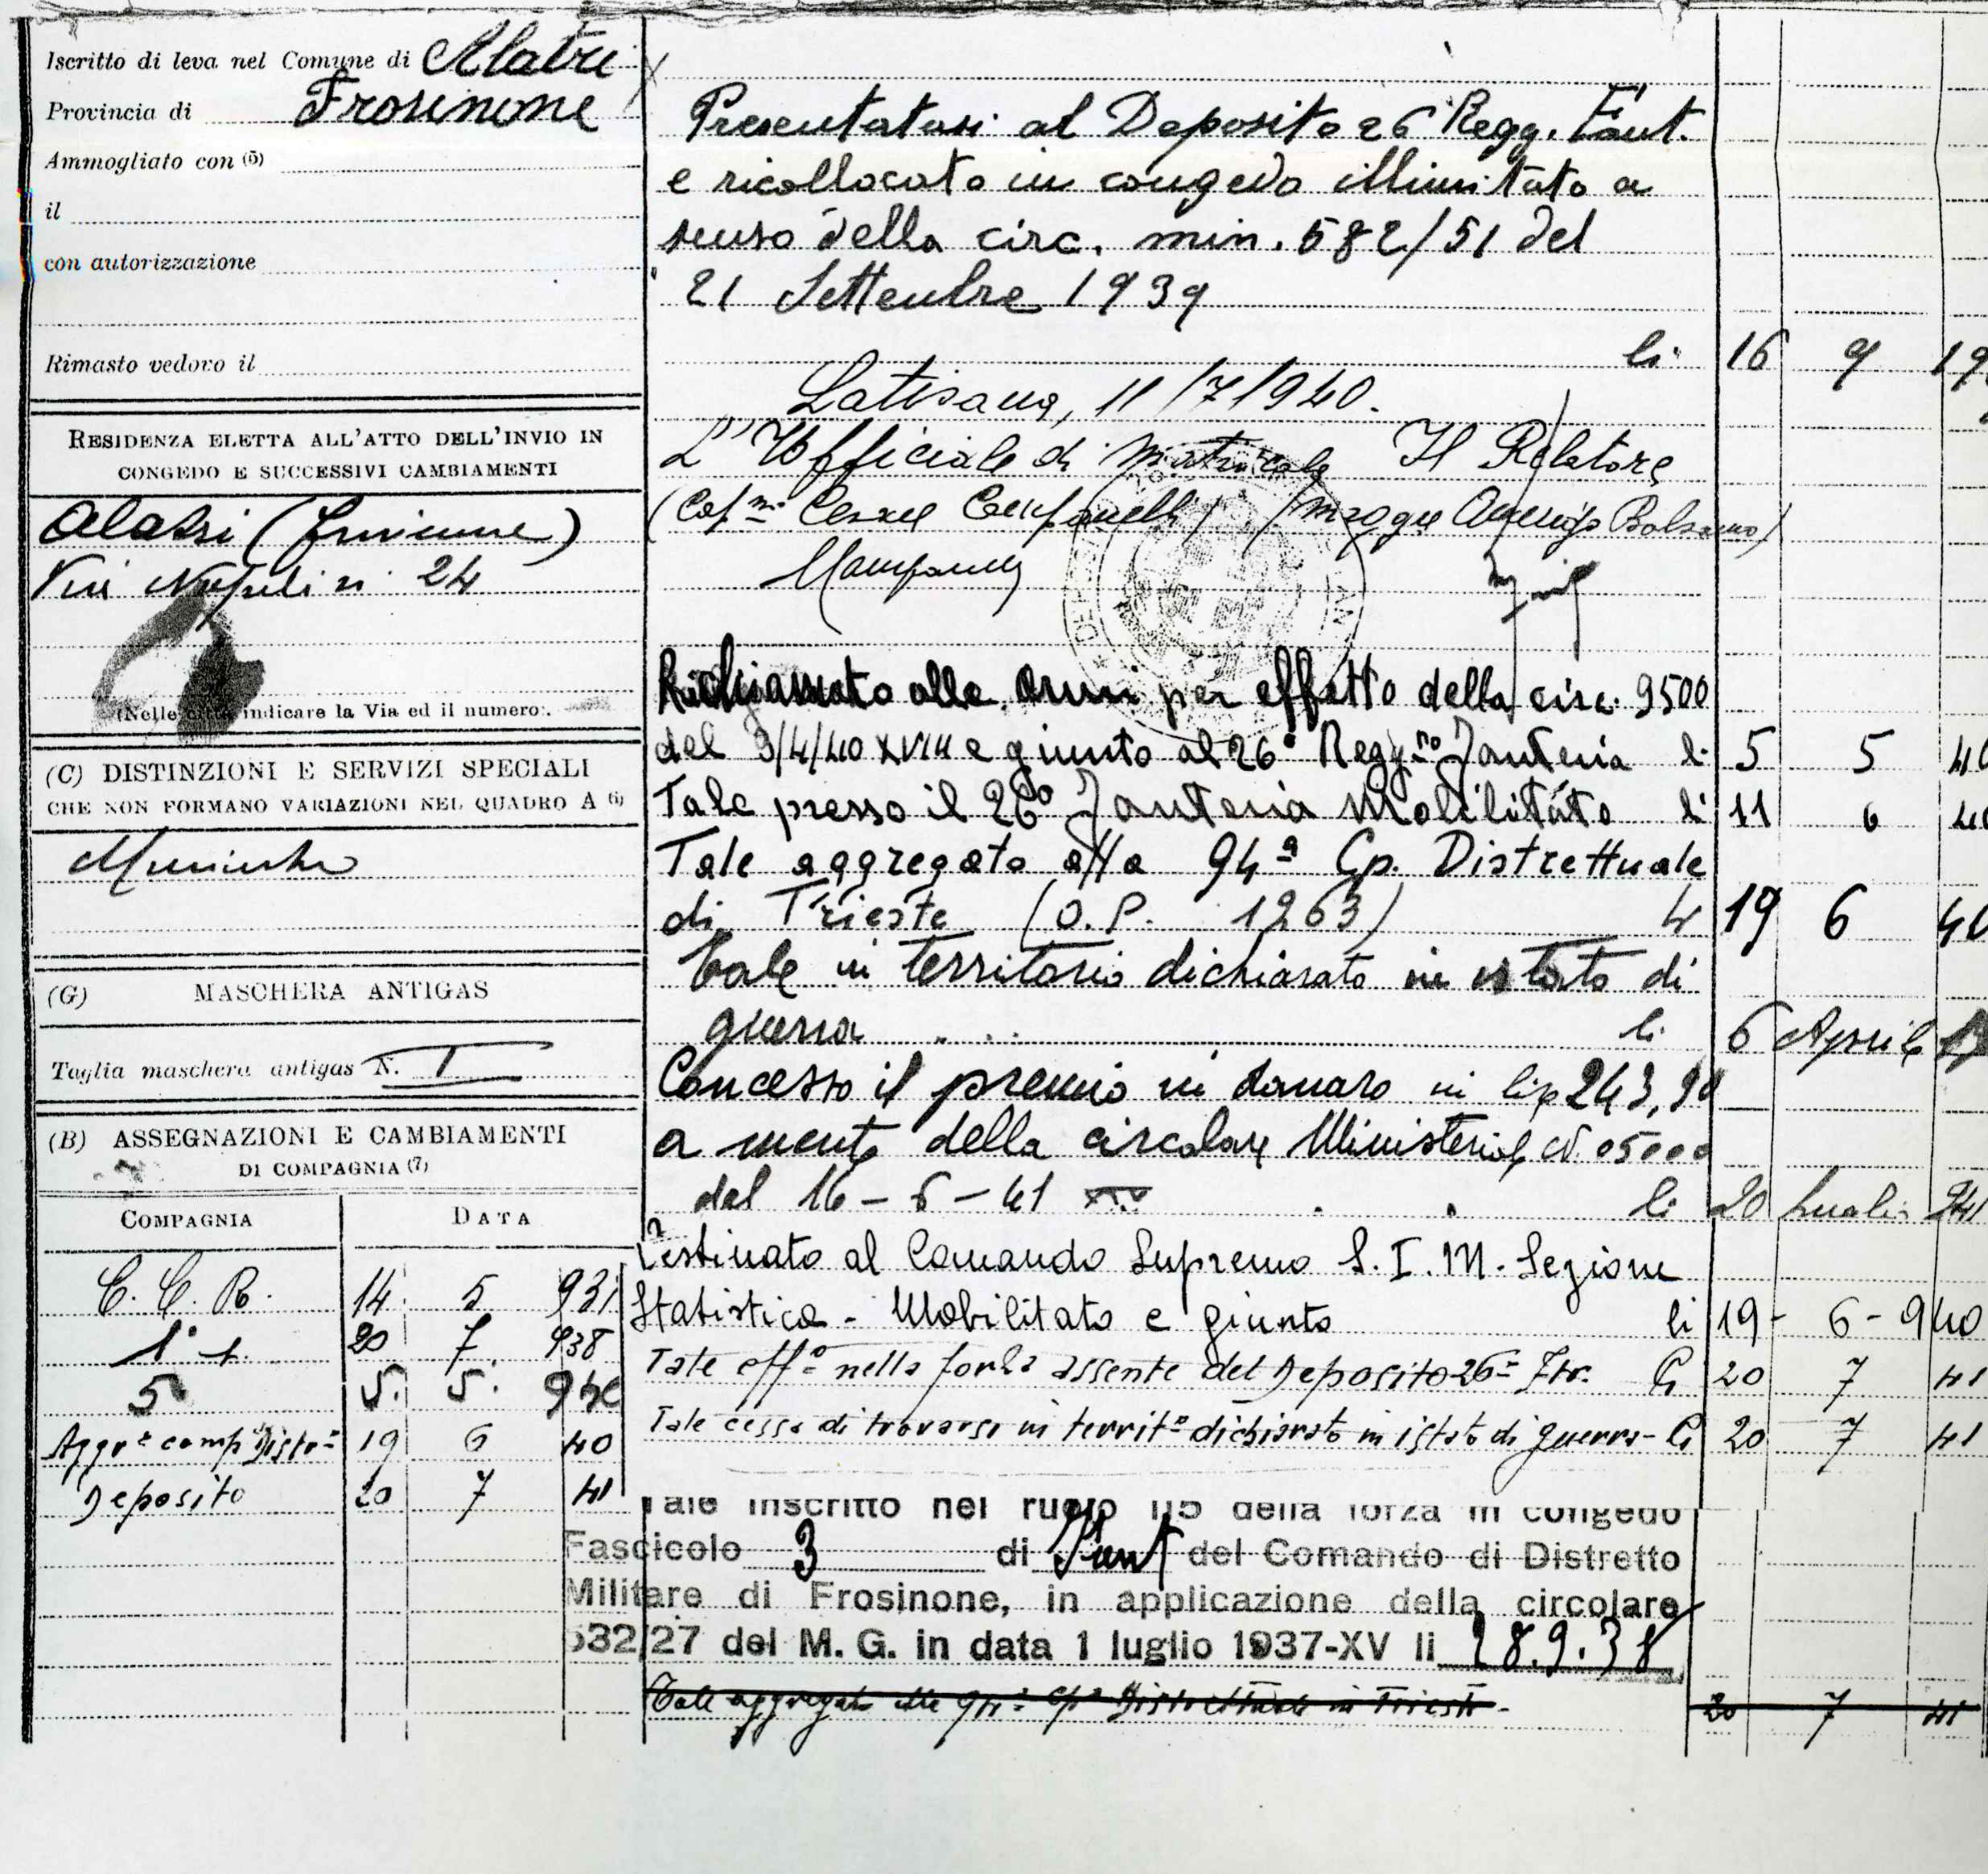 Iscritto di leva nel Comune di Alatri
Provincia di Frosinone
Ammogliato con (5)
il
con autorizzazione
Rimasto vedovo il
RESIDENZA ELETTA ALL'ATTO DELL'INVIO IN
CONGEDO E SUCCESSIVI CAMBIAMENTI
Alatri (Frosinone)
Via Napoli n. 24
(Nelle città indicare la Via ed il numero).
(C) DISTINZIONI E SERVIZI SPECIALI
CHE NON FORMANO VARIAZIONI NEL QUADRO A (6)
(G) MASCHERA ANTIGAS
Taglia maschera antigas N. I
(B) ASSEGNAZIONI E CAMBIAMENTI
DI COMPAGNIA (7)
COMPAGNIA DATA
C. C. R. 14. 5 931
1ª 20 7 938
5ª 5. 5. 940
Aggrº comp Distrº 19 6 40
Deposito 20 7 41
Presentatosi al Deposito 26 Regg. Fant.
e ricollocato in congedo illimitato a
senso della circ. min. 582/51 del
21 Settembre 1939
li 16 9 19
Latisana, 11/7/1940.
L'Ufficiale di matricola Il Relatore
(Capno Cesare Campanelli) (Maggre Bolzano)
Richiamato alle armi per effetto della circ. 9500
del 3/4/40 XVIII e giunto al 26° Reggto Fanteria li 5 5 40
Tale presso il 26° Fanteria Mobilitato li 11 6 40
Tale aggregato alla 94ª Cp. Distrettuale
di Trieste (O.P. 1263) li 19 6 40
Tale in territorio dichiarato in istato di
guerra li 6 Aprile
Concesso il premio in danaro in lire 243,90
a mente della circolare Ministeriale N. 05000
del 16-6-41 li 20 Luglio 941
Destinato al Comando Supremo S.I.M. Sezione
Statistica - Mobilitato e giunto li 19- 6- 940
Tale effº nella forza assente del Deposito 26º Ftr. li 20 7 41
Tale cessa di trovarsi in territº dichiarato in istato di guerra - li 20 7 41
Tale inscritto nel ruolo 115 della forza in congedo
Fascicolo 3 di Fant del Comando di Distretto
Militare di Frosinone, in applicazione della circolare
532/27 del M. G. in data 1 luglio 1937-XV li 28.9.38
Tale aggregato alla 94ª cpª Distrettuale in Trieste - 20 7 41